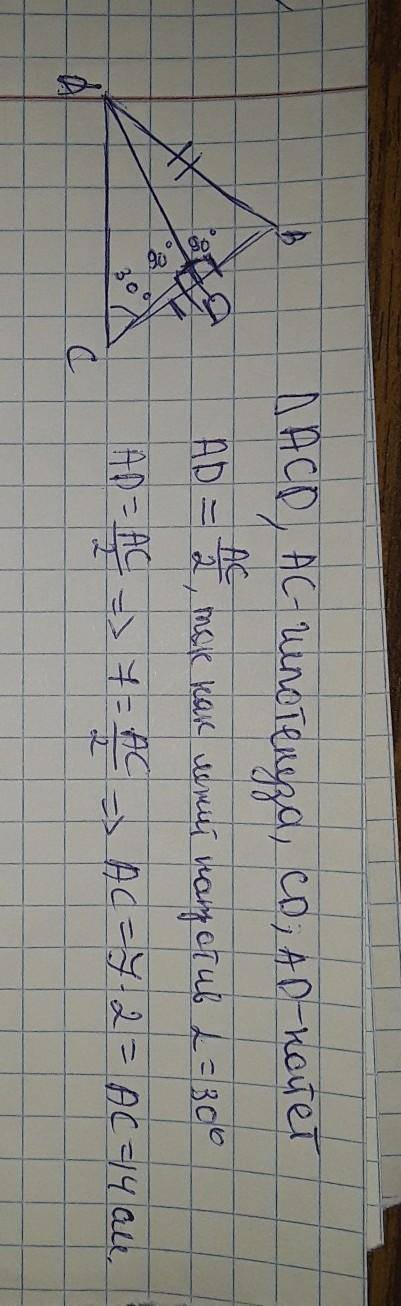 A
B
C
D
90°
90°
30°
ΔACD, AC-гипотенуза, CD; AD-катет
AD = AC/2, так как лежит напротив ∠=30°
AD = AC/2 => 7 = AC/2 => AC = 7·2 = AC = 14 см.